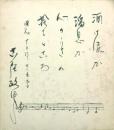 酒は涙か
溜息か
心のうさの
捨てどころ
古賀政男